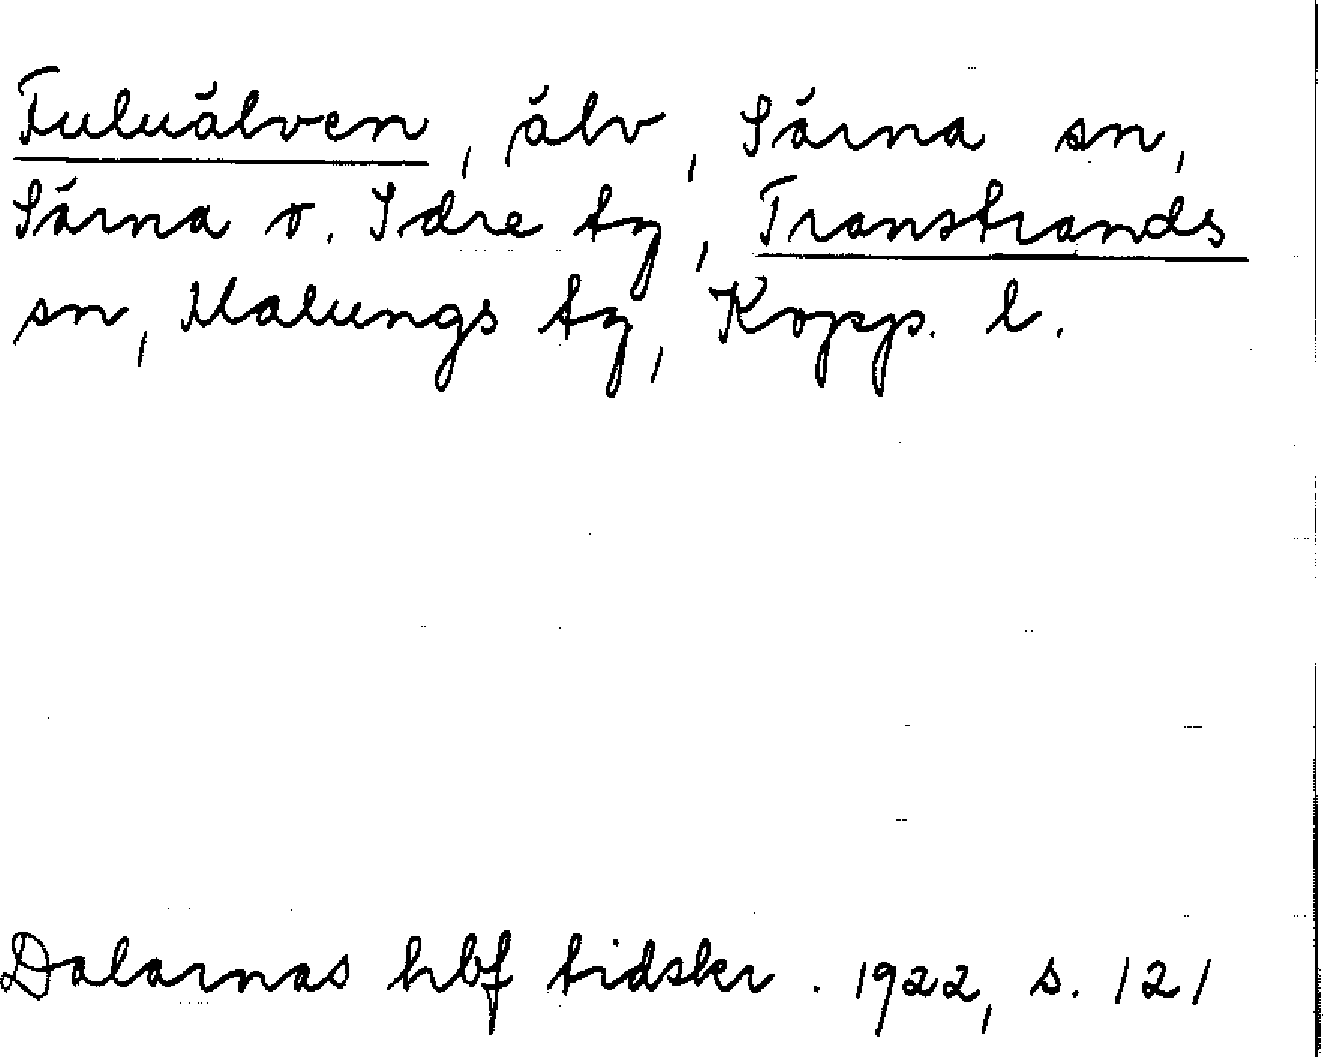 Fuluälven, älv, Särna sn,
Särna o. Idre tg, Transtrands
sn, Malungs tg, Kopp. l.
Dalarnas hbf tidskr. 1922, s. 121